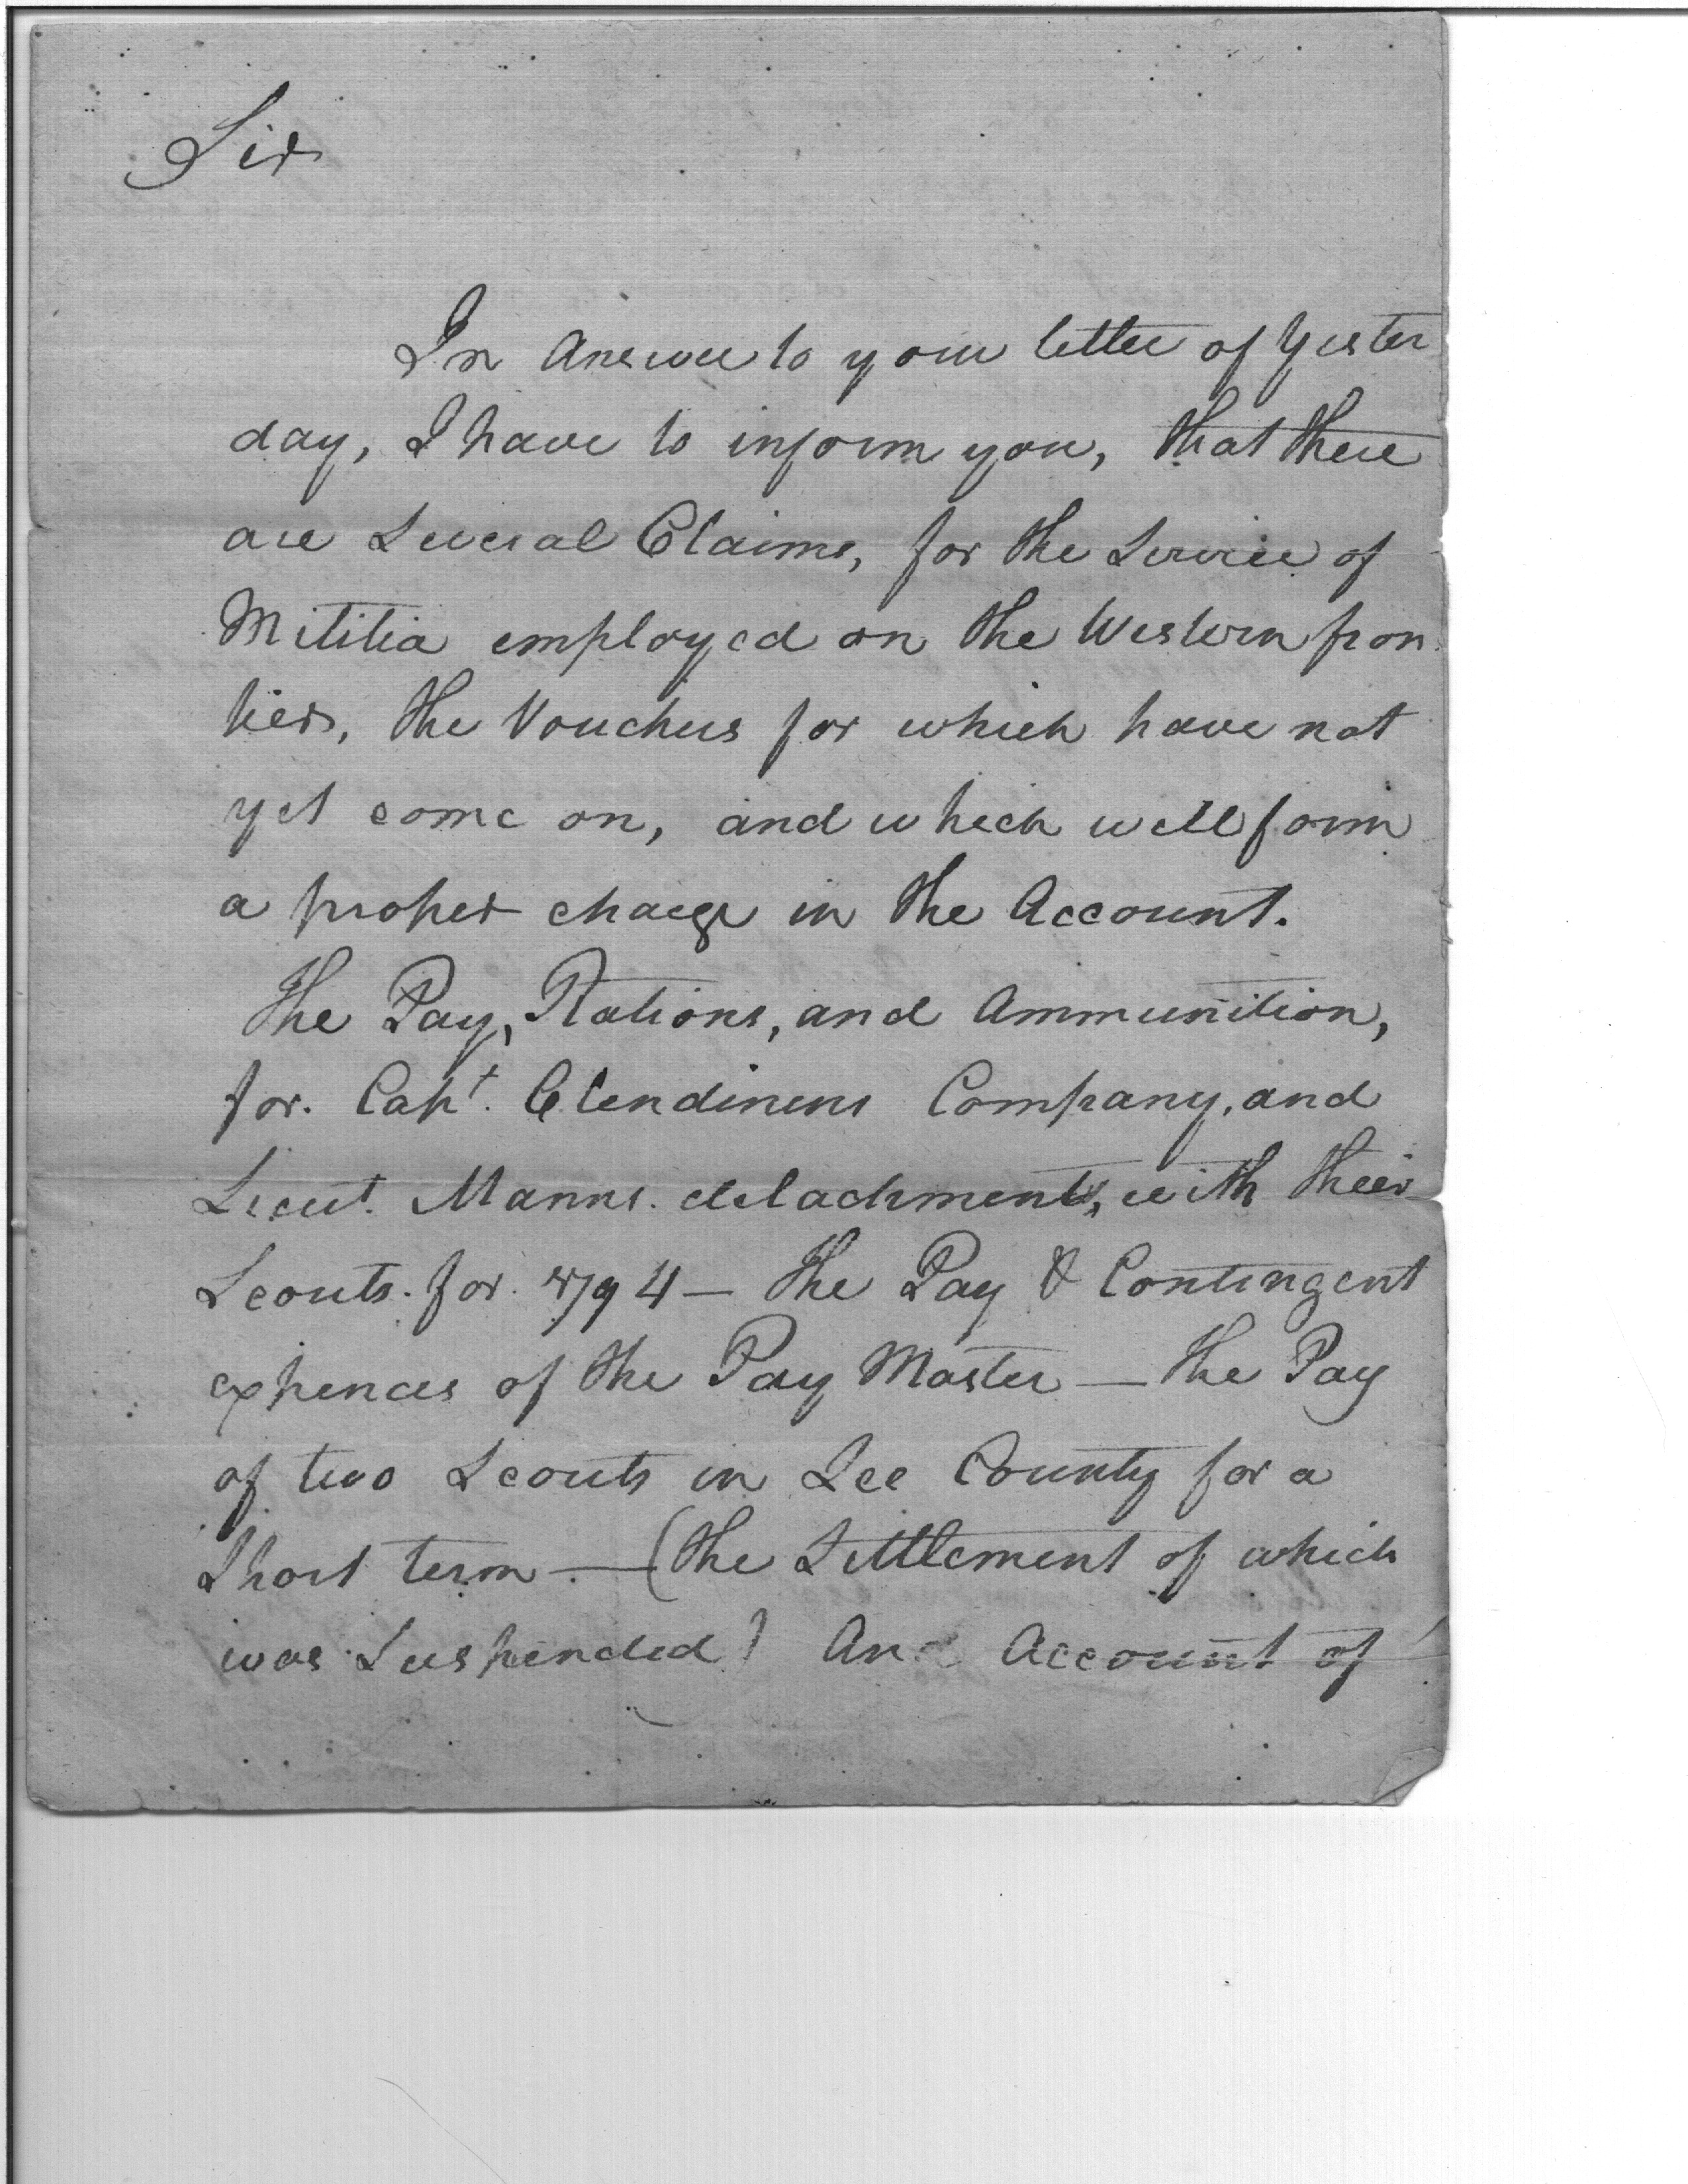 Sir
In Answer to your letter of Yester
day, I have to inform you, that there
are Several Claims, for the Service of
Militia employed on the Western fron
tier, the Vouchers for which have not
yet come on, and which will form
a proper charge in the Account.
The Pay, Rations, and Ammunition,
for. Capt. Clendinens Company, and
Lieut. Manns. detachment, with their
Scouts. for. 1794 — The Pay & Contingent
expences of the Pay Master — the Pay
of two Scouts in Lee County for a
Short term. — (the Settlement of which
was Suspended) And Account of